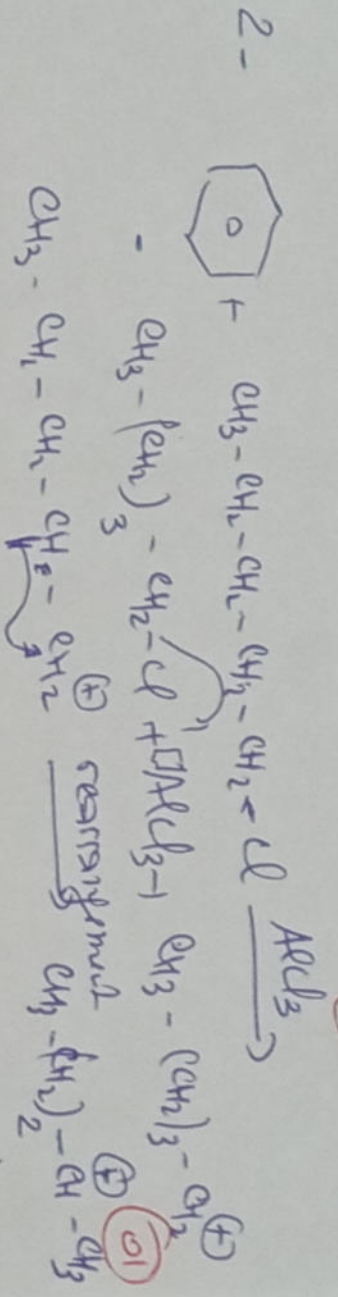 2 - + CH3 - CH2 - CH2 - CH2 - CH2 - Cl AlCl3
- CH3 - (CH2)3 - CH2 - Cl + AlCl3 → CH3 - (CH2)3 - CH2 +
CH3 - CH2 - CH2 - CH2 - CH2 + rearrangement CH3 - (CH2)2 - CH - CH3 +
01